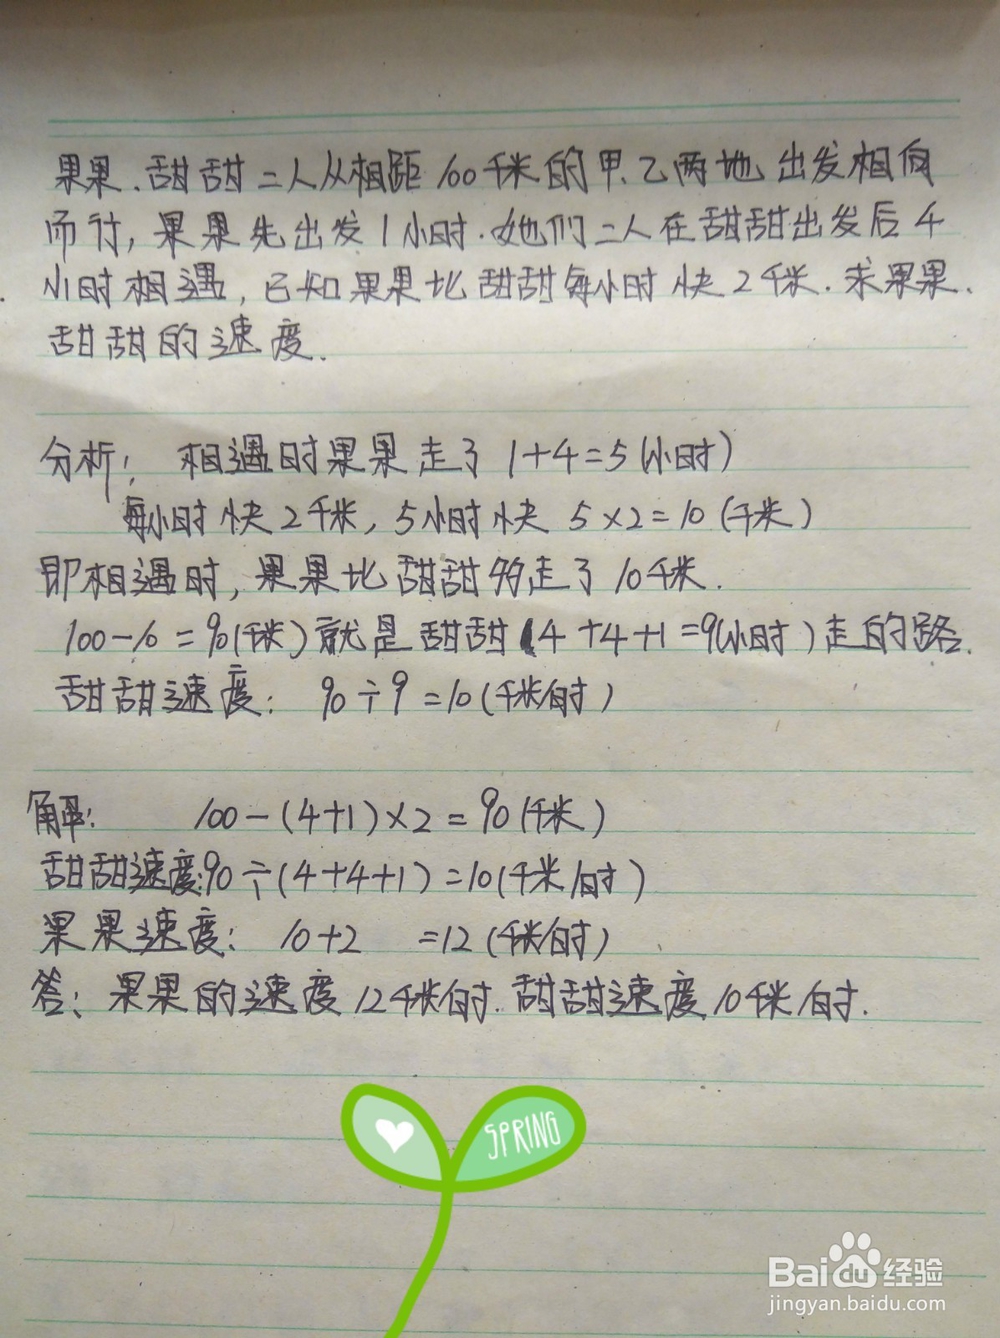 果果、甜甜二人从相距100千米的甲、乙两地出发相向
而行，果果先出发1小时.她们二人在甜甜出发后4
小时相遇，已知果果比甜甜每小时快2千米.求果果、
甜甜的速度.
分析： 相遇时果果走了1+4=5(小时)
每小时快2千米，5小时快 5×2=10(千米)
即相遇时，果果比甜甜多走了10千米.
100-10=90(千米)就是甜甜(4+4+1=9(小时)走的路.
甜甜速度： 90÷9=10(千米/时)
解： 100-(4+1)×2=90(千米)
甜甜速度:90÷(4+4+1)=10(千米/时)
果果速度： 10+2 =12(千米/时)
答：果果的速度12千米/时.甜甜速度10千米/时.
SPRING
Baidu经验
jingyan.baidu.com